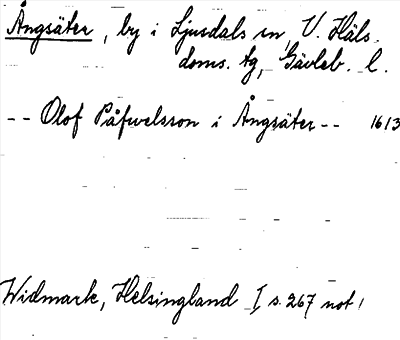 Ångsäter, by i Ljusdals sn, V. Häls.
doms. tg, Gävleb. l.
-- Olof Påfwelsson i Ångsäter -- 1613
Widmark, Helsingland I s. 267 not 1